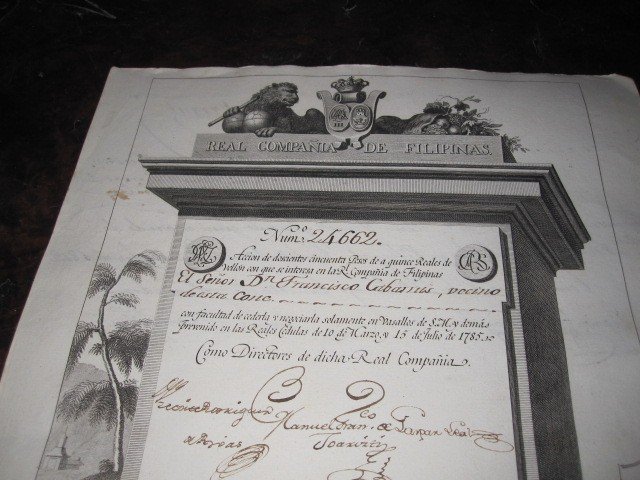 REAL COMPAÑIA DE FILIPINAS.
Num.º 24662.
Accion de doscientos cincuenta Pesos de a quince Reales de
Vellon con que se interesa en la Rl. Compañia de Filipinas
El Señor Dn. Francisco Cabarrus, vecino
de esta Corte.
con facultad de cederla y negociarla solamente en Vasallos de S.M. y demás
prevenido en las Reales Cédulas de 10 de Marzo y 15 de Julio de 1785.
Como Directores de dicha Real Compañia.
Manuel Fran.co